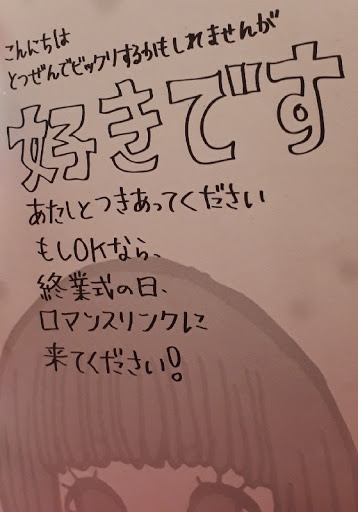 こんにちは
とつぜんでビックリするかもしれませんが
好きです
あたしとつきあってください
もしOKなら、
終業式の日、
ロマンスリンクに
来てください!